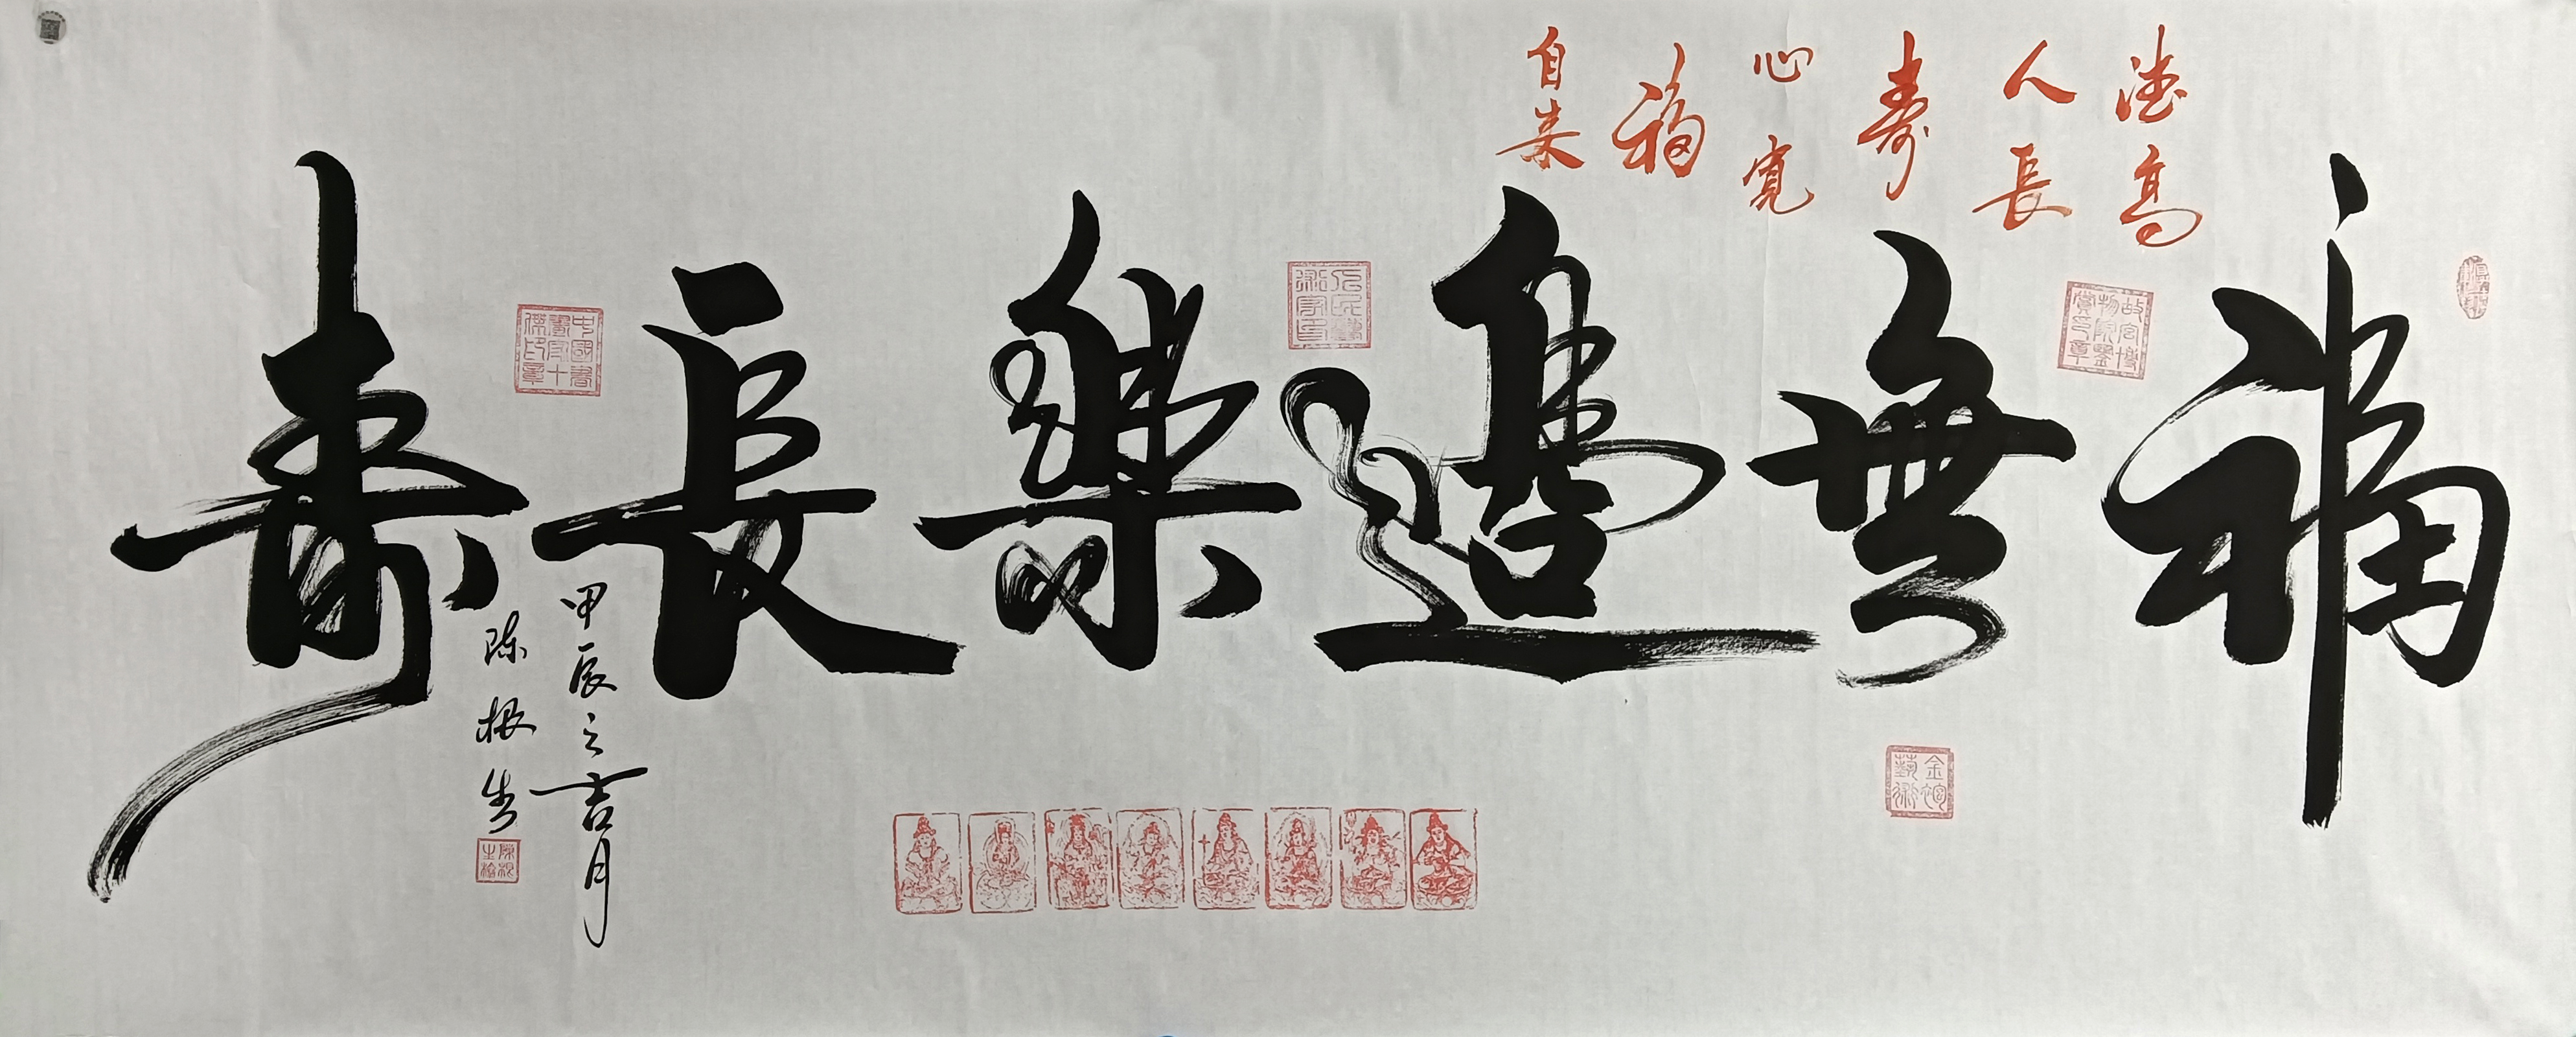 福無邊樂長壽
德高
人長
壽
心寬
福
自來
甲辰之吉月
陈根生
故宮博物院鑒賞印章
金詞藝術
中國書畫家十傑印章
陈根生印